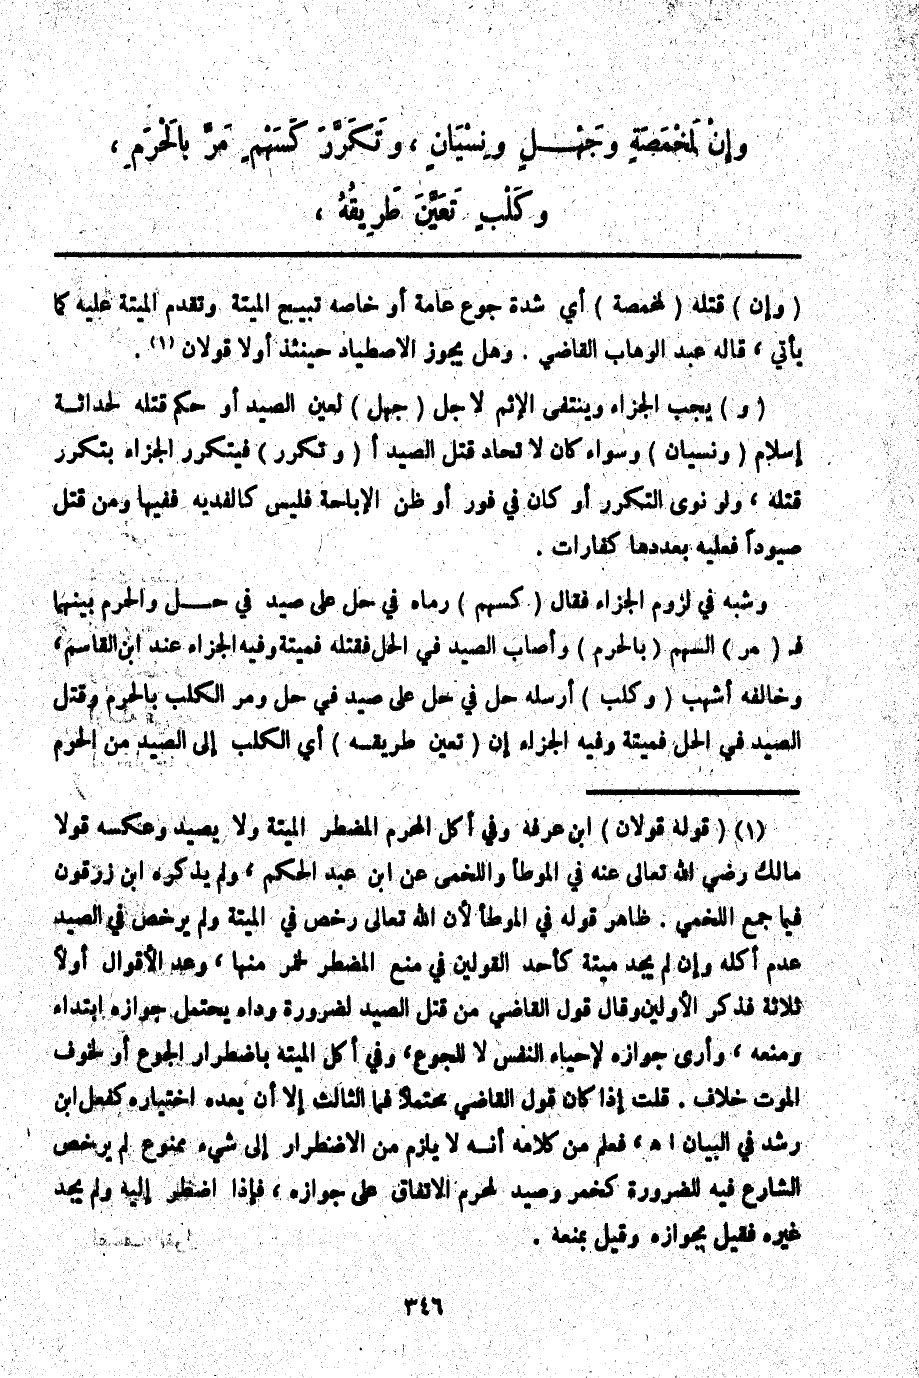 وإنْ لِمَخْمَصَةٍ وجَهْــلٍ ونِسْيَانٍ ، و تَكَرَّرَ كَسَهْمٍ مَرَّ بالْحَرَمِ ،
وكَلْبٍ تَعَيَّنَ طَرِيقُهُ ،
( وإن ) قتله ( لمخمصة ) أي شدة جوع عامة أو خاصه تبيـح الميتة وتقدم الميتة عليه كما
يأتي ، قاله عبد الوهاب القاضي . وهل يجوز الاصطياد حينئذ أولا قولان (١) .
( و ) يجب الجزاء وينتفى الإثم لاجل ( جهل ) لعين الصيد أو حكم قتله لحداثــة
إسلام ( ونسيان ) وسواء كان لا تحاد قتل الصيد أ ( و تكرر ) فيتكرر الجزاء بتكرر
قتله ، ولو نوى التكرر أو كان في فور أو ظن الإباحة فليس كالفديه ففيها ومن قتل
صيوداً فعليه بعددها كفارات .
وشبه في لزوم الجزاء فقال ( كسهم ) رماه في حل على صيد في حـــل والحرم بينهما
فـ ( مر ) السهم ( بالحرم ) وأصاب الصيد في الحل فقتله فميتة وفيه الجزاء عند ابن القاسم،
وخالفه أشهب ( وكلب ) أرسله حل في حل على صيد في حل ومر الكلب بالحرم وقتل
الصيد في الحل فميتة وفيه الجزاء إن ( تعين طريقــه ) أي الكلب إلى الصيد من الحرم
(١) ( قوله قولان ) ابن عرفه وفي أكل المحرم المضطر الميتة ولا يصيد وعكسه قولا
مالك رضي الله تعالى عنه في الموطأ واللخمى عن ابن عبد الحكم ، ولم يذكره ابن زرقون
فيما جمع اللخمي . ظاهر قوله في الموطأ لأن الله تعالى رخص في الميتة ولم يرخص في الصيد
عدم أكله وإن لم يجد ميتة كأحد القولين في منع المضطر لخمر منها ، وعد الأقوال أولاً
ثلاثة فذكر الأولين وقال قول القاضي من قتل الصيد لضرورة وداه يحتمل جوازه ابتداء
ومنعه ، وأرى جوازه لإحياء النفس لا للجوع، وفي أكل الميتة باضطرار الجوع أو لخوف
الموت خلاف . قلت إذا كان قول القاضي محتملاً فما الثالث إلا أن يعده اختياره كفعل ابن
رشد في البيان ا ه ، فعلم من كلامه أنــه لا يلزم من الاضطرار إلى شيء ممنوع لم يرخص
الشارع فيه للضرورة كخمر وصيد لمحرم الاتفاق على جوازه ، فإذا اضطر إليه ولم يجد
غيره فقيل بجوازه وقيل بمنعة .
٣٤٦